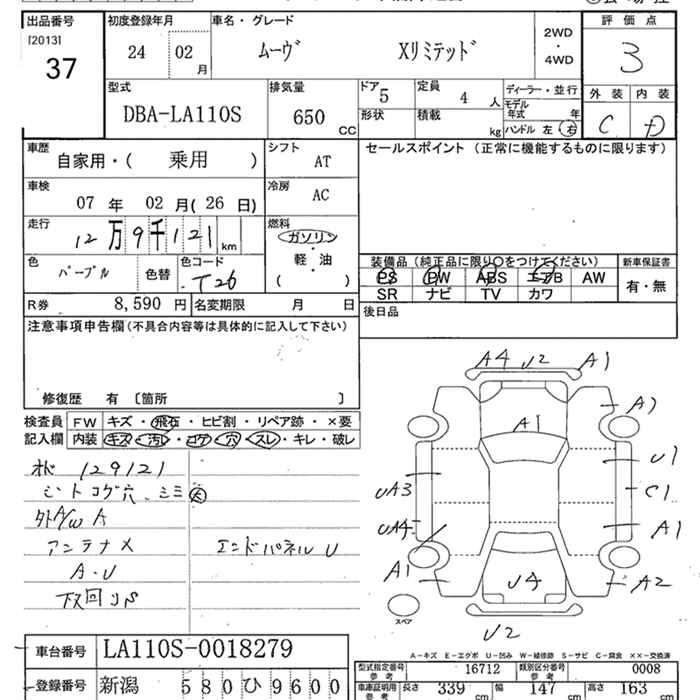 出品番号 初度登録年月 車名・グレード 評価点
[2013] 37 24 02月 ムーヴ Xリミテッド 2WD・4WD 3
型式 排気量 ドア 5 定員 4人 ディーラー・並行 外装 内装
DBA-LA110S 650 CC 形状 積載 kg モデル年式 年 C D
ハンドル 左・右
車歴 シフト セールスポイント (正常に機能するものに限ります)
自家用・( 乗用 ) AT
車検 冷房
07年 02月(26日) AC
走行 燃料
12万9千121km ガソリン・軽・油
( )
色 色替 色コード 装備品 (純正品に限り○をつけてください) 新車保証書
パープル T26 PS PW ABS エアB AW 有・無
SR ナビ TV カワ
R券 8,590円 名変期限 月 日 後日品
注意事項申告欄 (不具合内容等は具体的に記入して下さい)
修復歴 有 〔箇所 〕
検査員 FW キズ・飛石・ヒビ割・リペア跡・×要
記入欄 内装 キズ・汚レ・コゲ・穴・スレ・キレ・破レ
129121
シートコゲ穴、シミ大
外A/W A
アンテナ× エンドパネルU
A・U
下回りS
A4 U2 A1
A1 A2
U1
UA3 C1
UA4 A1
A1 U4 A2
スペア
U2
A-キズ E-エクボ U-凹み W-補修跡 S-サビ C-腐食 ××-交換済
車台番号 LA110S-0018279
型式指定番号 参考 16712 類別区分番号 参考 0008
登録番号 新潟 580ひ9600
車庫証明用 参考 長さ 339cm 幅 147cm 高さ 163cm